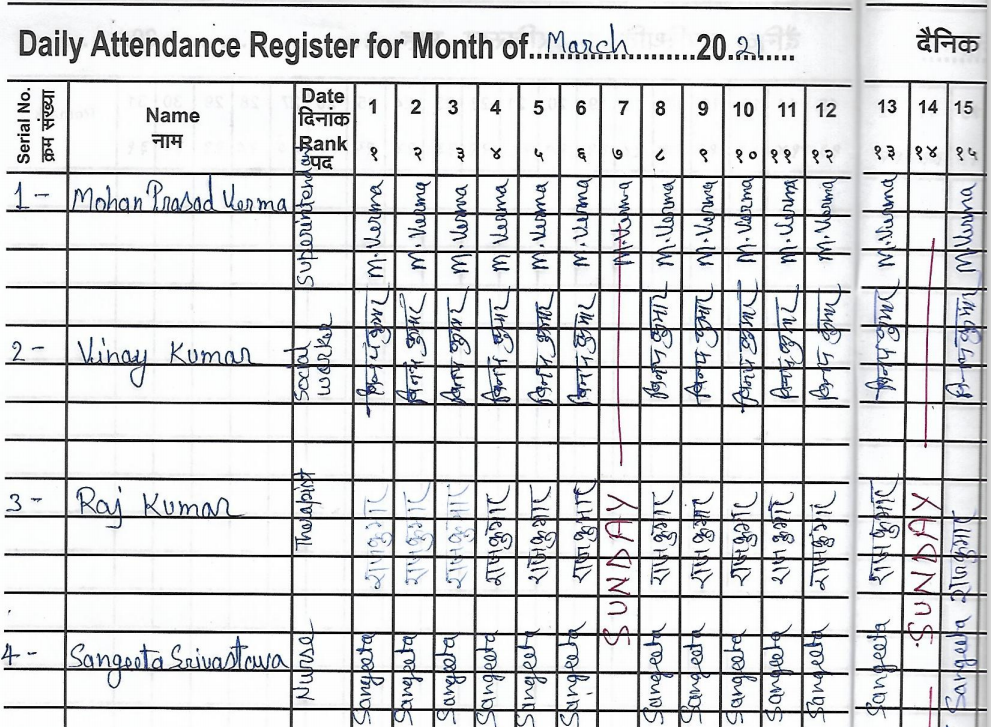 Daily Attendance Register for Month of March 2021 दैनिक
Serial No. क्रम संख्या Name नाम Date दिनांक Rank पद 1 2 3 4 5 6 7 8 9 10 11 12 13 14 15
१ २ ३ ४ ५ ६ ७ ८ ९ १० ११ १२ १३ १४ १५
1- Mohan Prasad Verma Superintendent M. Verma M. Verma M. Verma M. Verma M. Verma M. Verma M. Verma M. Verma M. Verma M. Verma M. Verma M. Verma M. Verma M. Verma
2- Vinay Kumar Social worker विनय कुमार विनय कुमार विनय कुमार विनय कुमार विनय कुमार विनय कुमार विनय कुमार विनय कुमार विनय कुमार विनय कुमार विनय कुमार विनय कुमार विनय कुमार
3- Raj Kumar Therapist राजकुमार राजकुमार राजकुमार राजकुमार राजकुमार राजकुमार SUNDAY राजकुमार राजकुमार राजकुमार राजकुमार राजकुमार राजकुमार SUNDAY राजकुमार
4- Sangeeta Srivastava Nurse Sangeeta Sangeeta Sangeeta Sangeeta Sangeeta Sangeeta Sangeeta Sangeeta Sangeeta Sangeeta Sangeeta Sangeeta Sangeeta